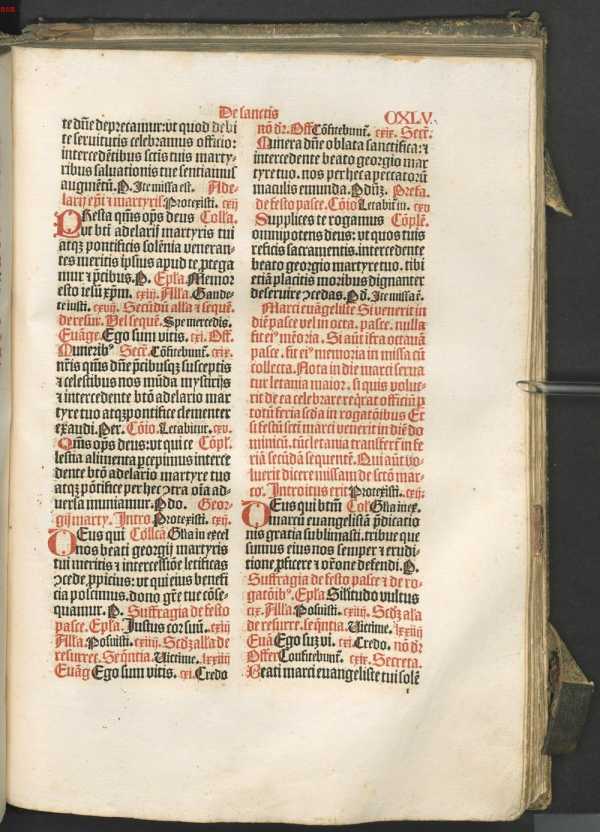 De sanctis
CXLV.
te dñe deprecamur: vt quod debi
te seruitutis celebramus officio:
intercedẽtibus sctis tuis marty-
ribus saluationis tue sentiamus
augmẽtũ. P. Ite missa est. Ade-
larij epĩ ⁊ martyris. Protexisti. cxij
PResta qs̃ om̃ps deus Collca.
vt bti adelarij martyris tui
atqz pontificis solẽnia veneran-
tes meritis ipsius apud te ptega
mur ⁊ p̃cibus. P. Epl̃a. Memor
esto iesũ xp̃m. cxiij. All̃a. Gaude-
te iusti. cxvij. Scd̃m all̃a ⁊ sequẽ.
de resur. Vel sequẽ. Spe mercedis.
Euãge. Ego sum vitis. cxi. Off.
Munerib⁹ Secr̃. Cõfitebunt̃. cxix.
nr̃is qs̃ms dñe p̃cibusqz susceptis
⁊ celestibus nos mũda mysterijs
⁊ intercedente btõ adelario mar
tyre tuo atqzpontifice clementer
exaudi. Per. Cõio. Letabitur. cxv.
Qs̃ms om̃ps deus: vt qui ce Cõpl̃.
lestia alimenta p̃cepimus interce
dente btõ adelario martyre tuo
atqz põtifice per hec ↄtra oĩa ad-
uersa muniamur. P. dño. Geor-
gij marty. Intro. Protexisti. cxij.
DEus qui Collcã Glĩa in excel
nos beati georgij martyris
tui meritis ⁊ intercessiõe letificas
ↄcede ppicius: vt qui eius benefi
cia poscimus. dono gr̃e tue cõse-
quamur. P. Suffragia de festo
pasce. Epl̃a. Justus cor suũ. cxiij
All̃a. Posuisti. cxiiij. Scd̃z all̃a de
resurrec. Sẽqntia. Victime. lxxiiij
Euãg Ego sum vitis. cxi. Credo
nõ dr̃. Off. Cõfitebunt̃. cxix. Secr̃.
Munera dñe oblata sanctifica: ⁊
intercedente beato georgio mar
tyre tuo. nos per hec a peccatorũ
maculis emunda. P. dñz. Prefa.
de festo pasce. Cõio Letabit̃ iu. cxv
Supplices te rogamus Cõplẽ.
omnipotens deus: vt quos tuis
reficis sacramentis. intercedente
beato georgio martyre tuo. tibi
etiã placitis moribus dignanter
deseruire ↄcedas. P. d. Ite missa ẽ.
Marci euãgeliste Si venerit in
diẽ pasce vel in octa. pasce. nulla
fit eiꝰ mẽoria. Si aũt ifra octauã
pasce. fit eiꝰ memoria in missa cũ
collecta. Nota in die marci serua
tur letania maior. si quis volue-
rit de ea celebrare req̃rat officiũ p
totũ feria scd̃a in rogatõibus Et
si festũ scti marci venerit in diẽ do
minicũ. tũc letania transfertr̃ in fe
riã secũdã sequentẽ. Qui aũt vo-
luerit dicere missam de sctõ mar-
co. Introitus erit Protexisti. cxij.
DEus qui btm̃ Col. Glĩa in ex.
marcũ euangelistã p̃dicatio
nis gratia sublimasti. tribue que
sumus eius nos semper ⁊ erudi-
tione p̃ficere ⁊ oratõne defendi. P.
Suffragia de festo pasce ⁊ de ro-
gatõib⁹. Epl̃a Silitudo vultus
cix. All̃a. Posuisti. cxiiij. Scd̃z all̃a
de resurre. seq̃ntia. Victime. lxxiiij
Euã Ego suz vi. cxi. Credo. nõ dr̃
Offer. Confitebunt̃. cxix. Secreta.
Beati marci euangeliste tui solẽ